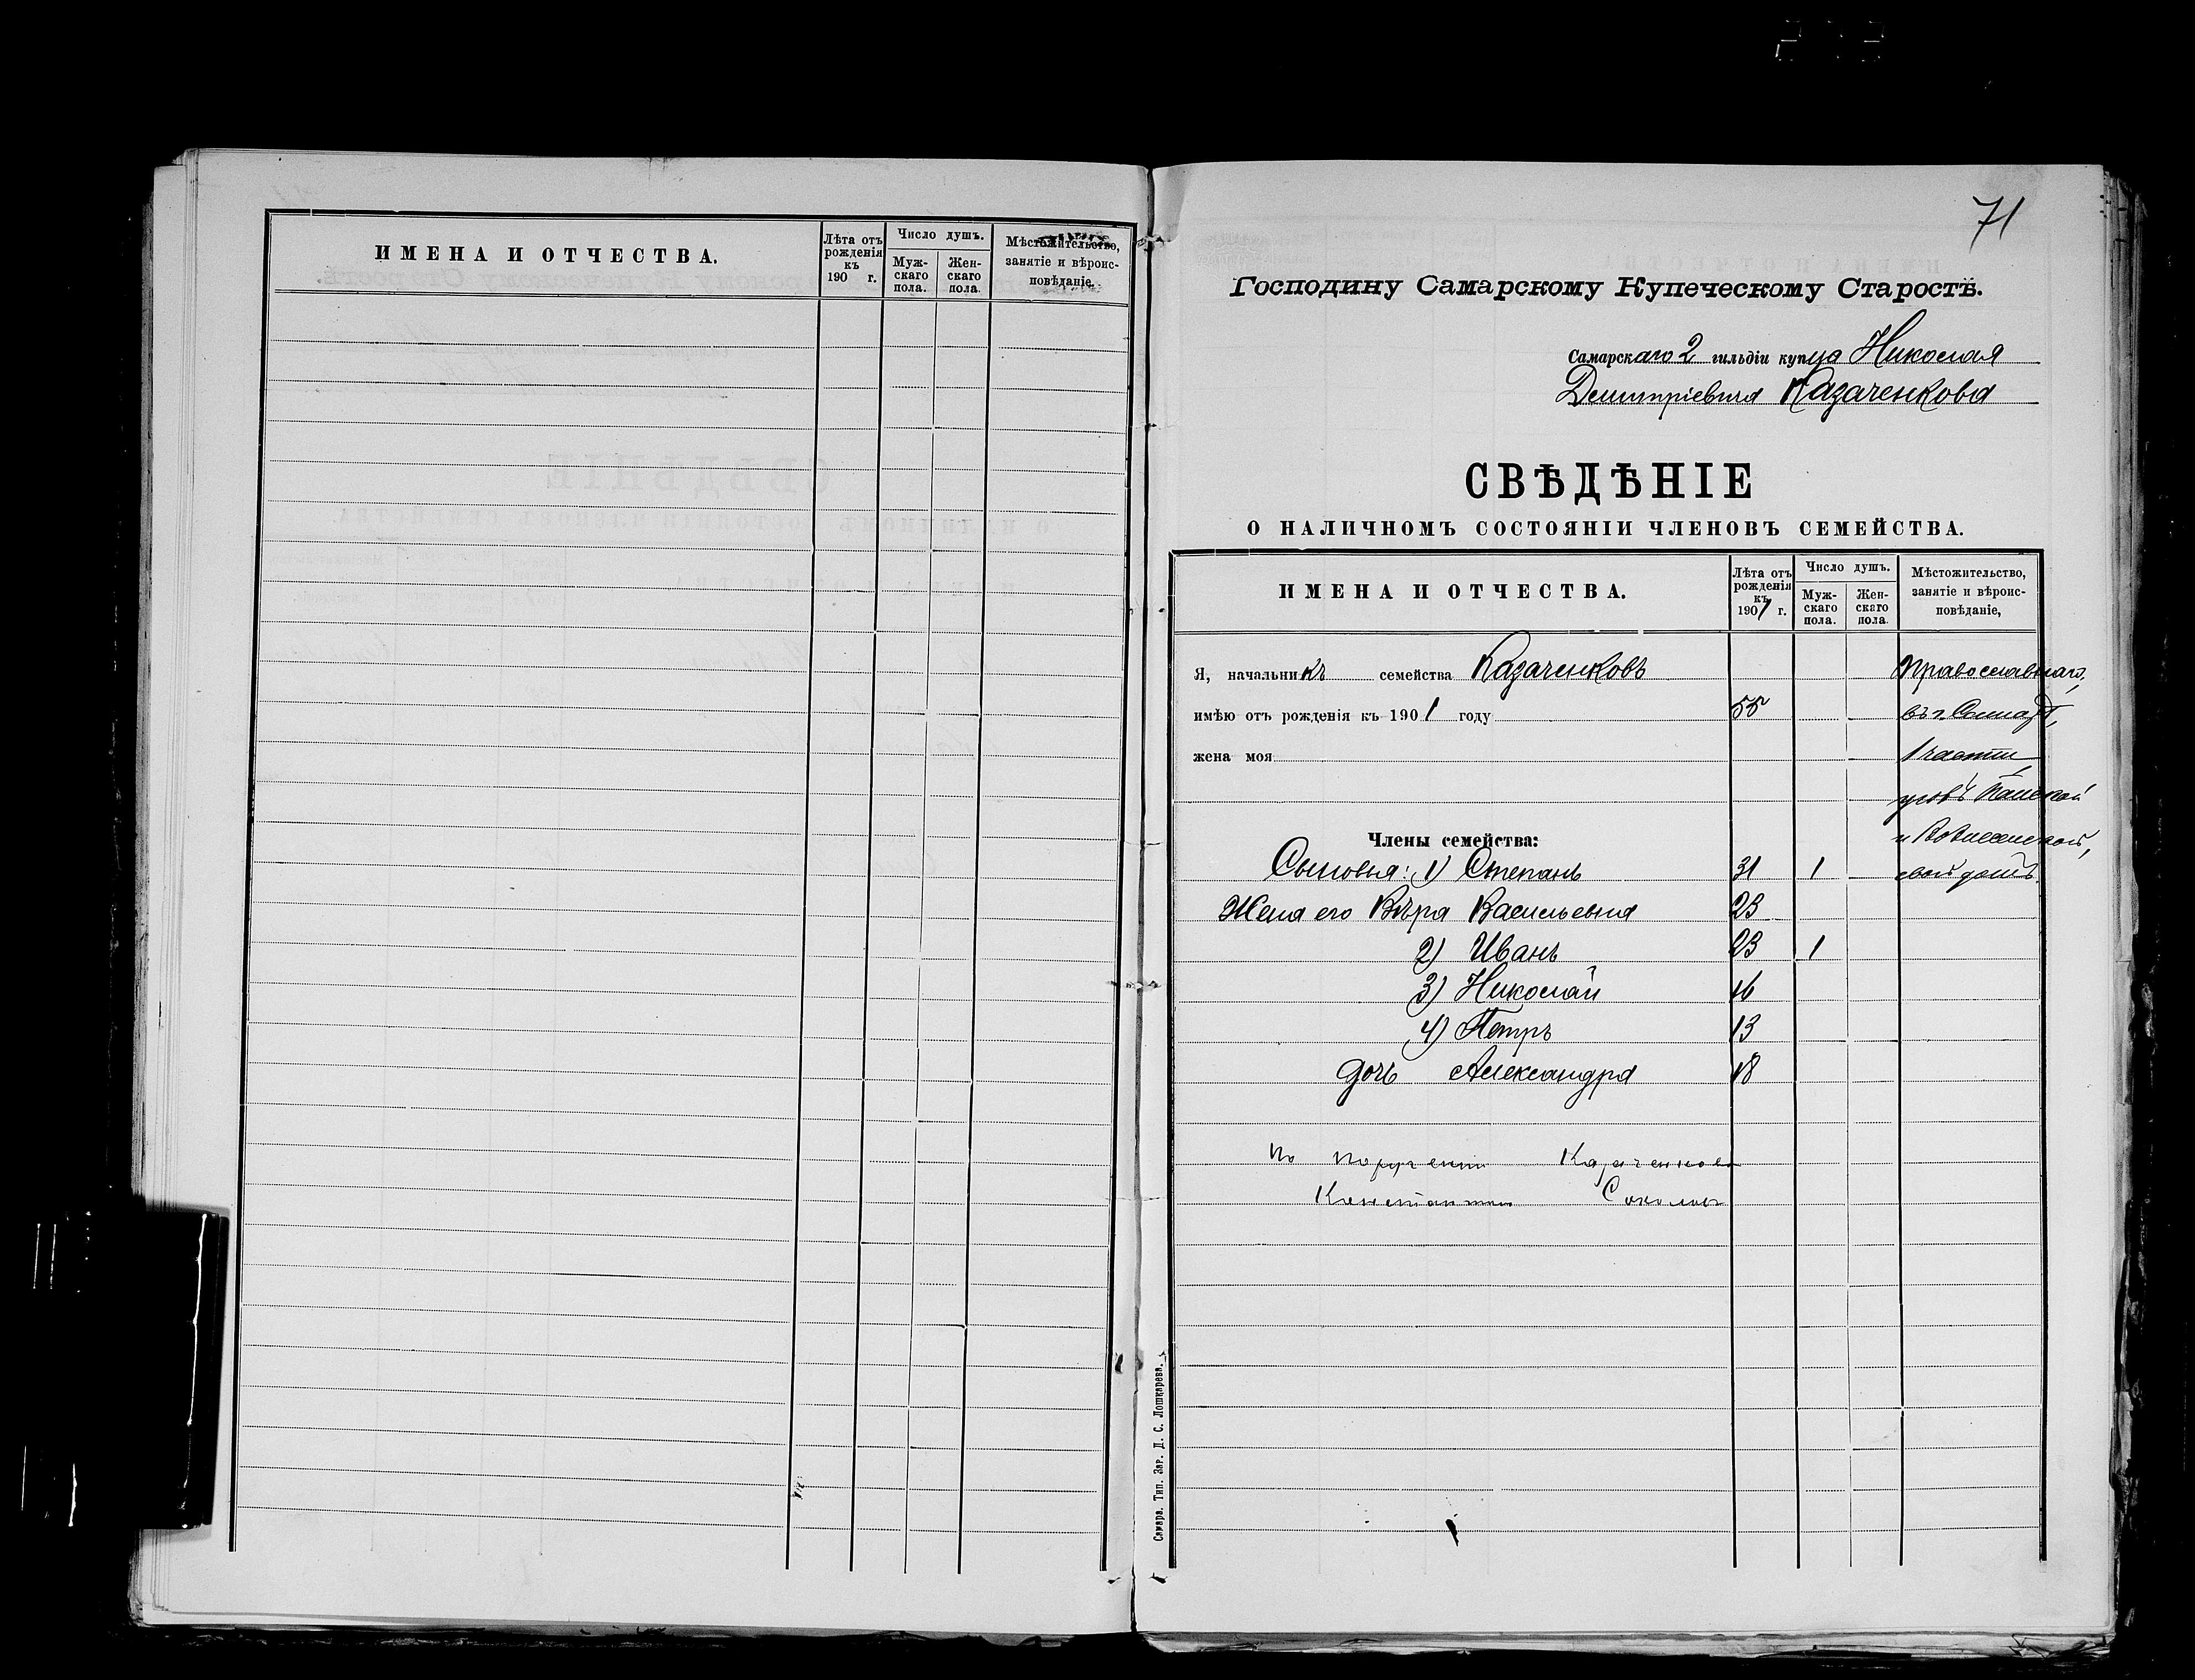 ИМЕНА И ОТЧЕСТВА.
Лѣта отъ рожденія къ 190 г.
Число душъ.
Мужскаго пола.
Женскаго пола.
Мѣстожительство, занятіе и вѣроисповѣданіе.
71
Господину Самарскому Купеческому Старостѣ.
Самарскаго 2 гильдіи купца Николая
Дмитріевича Казаченкова
СВѢДѢНІЕ
О НАЛИЧНОМЪ СОСТОЯНІИ ЧЛЕНОВЪ СЕМЕЙСТВА.
ИМЕНА И ОТЧЕСТВА.
Лѣта отъ рожденія къ 1901 г.
Число душъ.
Мужскаго пола.
Женскаго пола.
Мѣстожительство, занятіе и вѣроисповѣданіе,
Я, начальникъ семейства Казаченковъ Православнаго,
имѣю отъ рожденія къ 1901 году 55 въ г. Самарѣ,
жена моя 1 части
уголъ Панской
Члены семейства: и Вознесенской,
Сыновья: 1) Степанъ 31 1 свой домъ.
Жена его Вѣра Васильевна 23
2) Иванъ 23 1
3) Николай 16
4) Петръ 13
дочь Александра 18
По порученію Казаченкова
Константин Соколовъ
Самара. Тип. Зар. Д. С. Лошкарева.